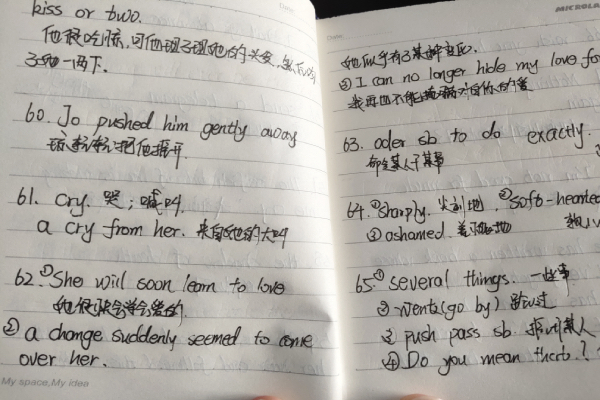 kiss or two.
他很吃惊,可他理了理她的头发,然后吻
了她一两下.
60. Jo pushed him gently away
琼轻轻把他推开.
61. Cry. 哭;喊叫.
a cry from her. 来自她的大叫
62.①She will soon learn to love
她很快会学会爱的.
② a change suddenly seemed to come
over her.
My space,My idea
Date
MICROLA
她似乎有了某种变应.
③ I can no longer hide my love for
我再也不能隐瞒对你的爱
63. oder sb to do exactly.
命令某人干某事
64.①sharply. 尖刻地 ②soft-hearted
③ashamed. 羞愧地
65① several things. 一些事
② went(go by) 路过
③ push pass sb 推
④ Do you mean that.?